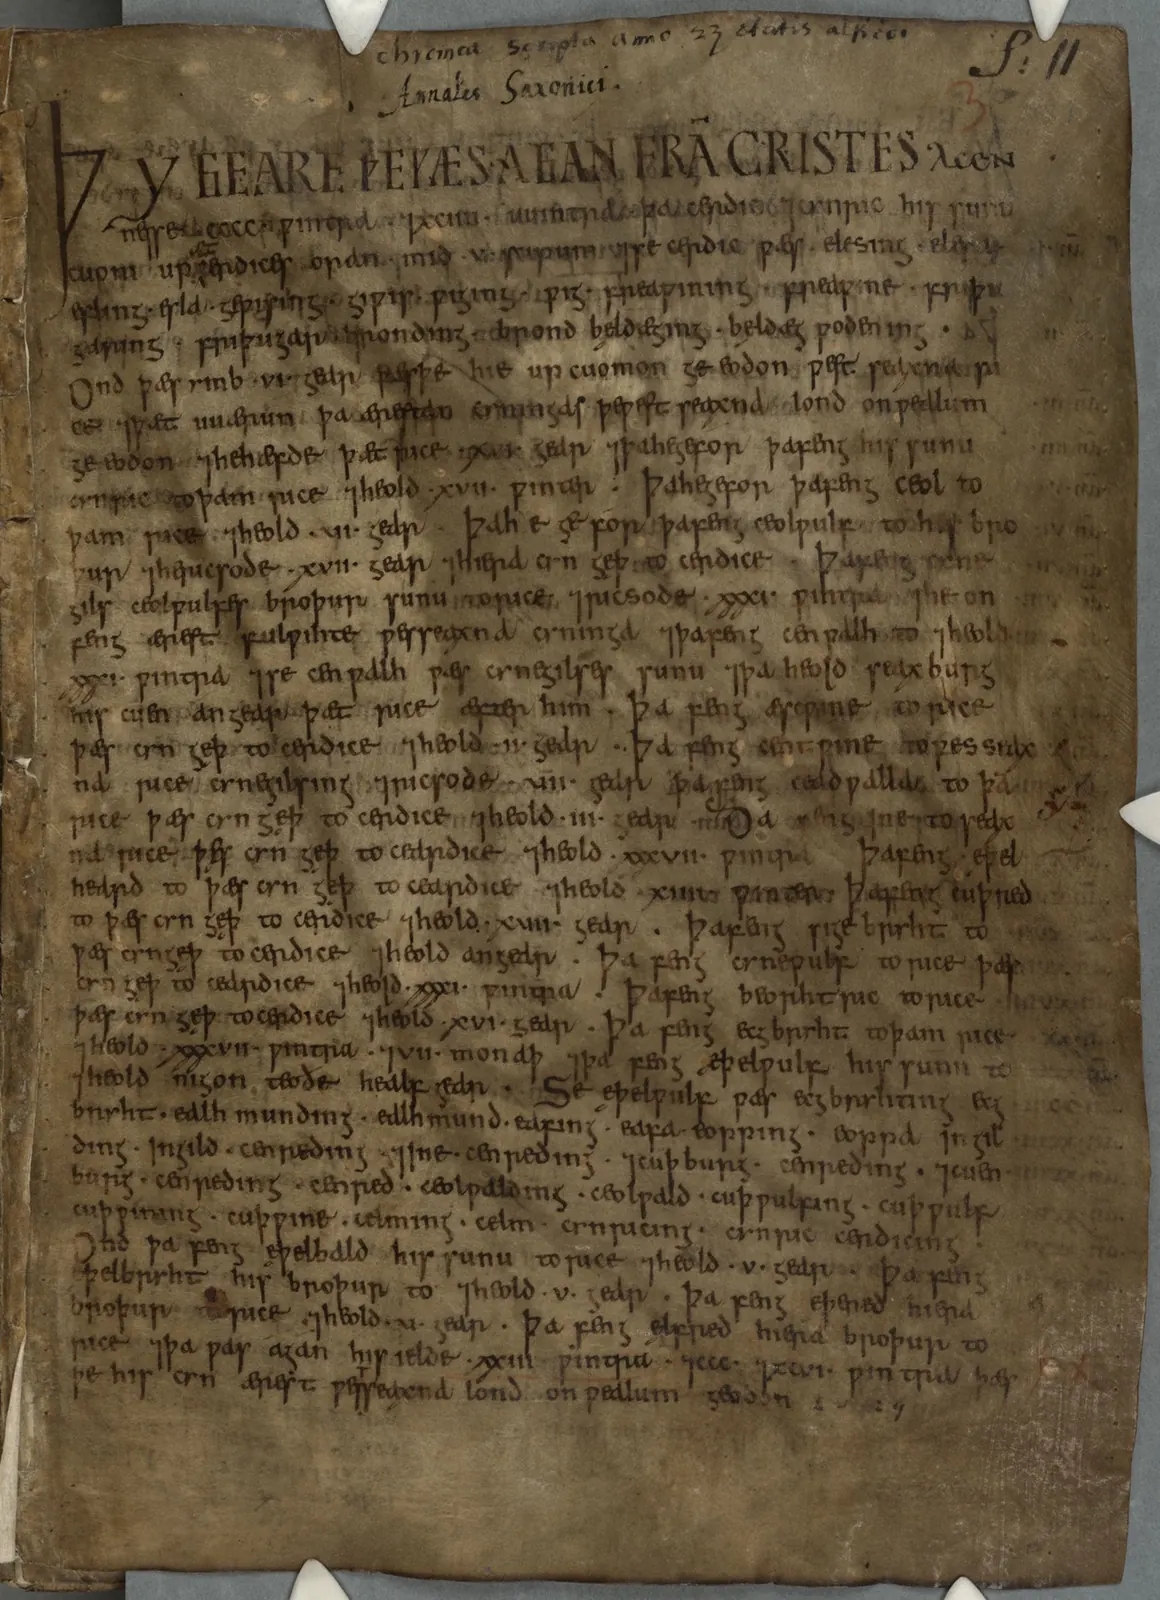 chronica scripta anno 23 etatis alfredi
S: 11
Annales Saxonici.
3
ÞY GEARE ÞE ǷÆS AGAN FRĀ CRISTES ACEN
nesse .cccc. ƿintra ⁊xciiii. uuintra þa cerdic ⁊cynric his sunu
cuom up cerdices oran mid .v. scipum ⁊se cerdic ƿæs elesing elesa
esling esla geƿising giƿis ƿiging ƿig freaƿining freaƿine friþu
garing friþugar bronding brond beldæging beldæg ƿodening.
Ond þæs ymb .vi. gear þæsþe hie up cuomon ge eodon ƿest seaxna ri
ce ⁊þæt uuærun þa ærestan cyningas þe ƿest seaxna lond on ƿealum
ge eodon ⁊he hæfde þæt rice .xvi. gear ⁊þa he gefor þa feng his sunu
cynric to þam rice ⁊heold .xvii. ƿinter. Þa he gefor þa feng ceol to
þam rice ⁊heold .vi. gear. Þa he gefor þa feng ceolƿulf to his bro
þur ⁊he ricsode .xvii. gear ⁊hiera cyn gęþ to cerdice. Þa feng cyne
gils ceolƿulfes broþur sunu to rice ⁊ricsode .xxxi. ƿintra ⁊he on
feng ærest fulƿihte ƿesseaxna cyninga ⁊þa feng cenƿalh to ⁊heold
.xxxi. ƿintra ⁊se cenƿalh ƿæs cynegilses sunu ⁊þa heold seaxburg
his cuen an gear þæt rice æfter him. Þa feng æscƿine to rice
þæs cyn gęþ to cerdice ⁊heold .ii. gear. Þa feng centƿine to ƿesseax
na rice cynegilsing ⁊ricsode .viiii. gear þa feng ceadƿalla to þā
rice þæs cyn gęþ to cerdice ⁊heold .iii. gear Þa feng ine to seax
na rice þæs cyn gęþ to ceardice ⁊heold .xxxvii. ƿintra Þa feng eþel
heard to þæs cyn gęþ to ceardice ⁊heold .xiiii. ƿinter Þa feng cuþred
to þæs cyn gęþ to cerdice ⁊heold .xvii. gear. Þa feng sigebryht to
þæs cyn gęþ to cerdice ⁊heold an gear. Þa feng cyneƿulf to rice þæs
cyn gęþ to ceardice ⁊heold .xxxi. ƿintra. Þa feng beorhtric to rice
þæs cyn gęþ to cerdice ⁊heold .xvi. gear. Þa feng ecgbryht to þam rice
⁊heold .xxxvii. ƿintra ⁊.vii. monaþ ⁊þa feng eþelƿulf his sunu to
⁊heold nigon teoðe healf gear. Se eþelƿulf ƿæs ecgbryhting ecg
bryht ealhmunding ealhmund eafing eafa eopping eoppa ingil
ding ingild cenreding ⁊ine cenreding ⁊cuþburg cenreding ⁊cuen
burg cenreding cenred ceolƿalding ceolƿald cuþƿulfing cuþƿulf
cuþƿining cuþƿine celming celm cynricing cynric cerdicing
Ond þa feng eþelbald his sunu to rice ⁊heold .v. gear. Þa feng
eþelbryht his broþur to ⁊heold .v. gear. Þa feng eþered hiera
broþur to rice ⁊heold .v. gear. Þa feng elfred hiera broþur to
rice ⁊þa ƿæs agan his ielde .xxiii. ƿintra ⁊ccc. ⁊xcvi. ƿintra þæs
þe his cyn ærest ƿesseaxna lond on ƿealum geodon